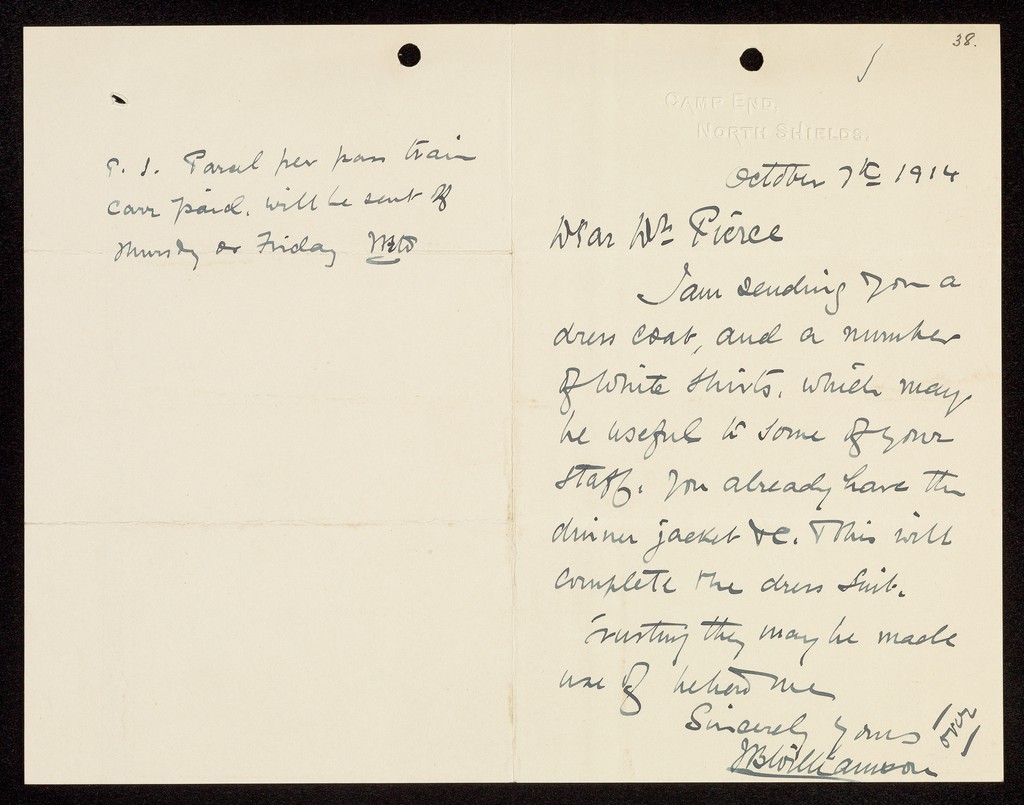 38.
CAMP END,
NORTH SHIELDS.
October 7th 1914
Dear Dr. Pierce
I am sending you a
dress coat, and a number
of white shirts, which may
be useful to some of your
staff. You already have the
dinner jacket &c. This will
complete the dress suit.
Trusting they may be made
use of believe me
Sincerely yours
JBWilliamson
(over)
P.S. Parcel per pass train
carr paid, will be sent off
Thursday or Friday